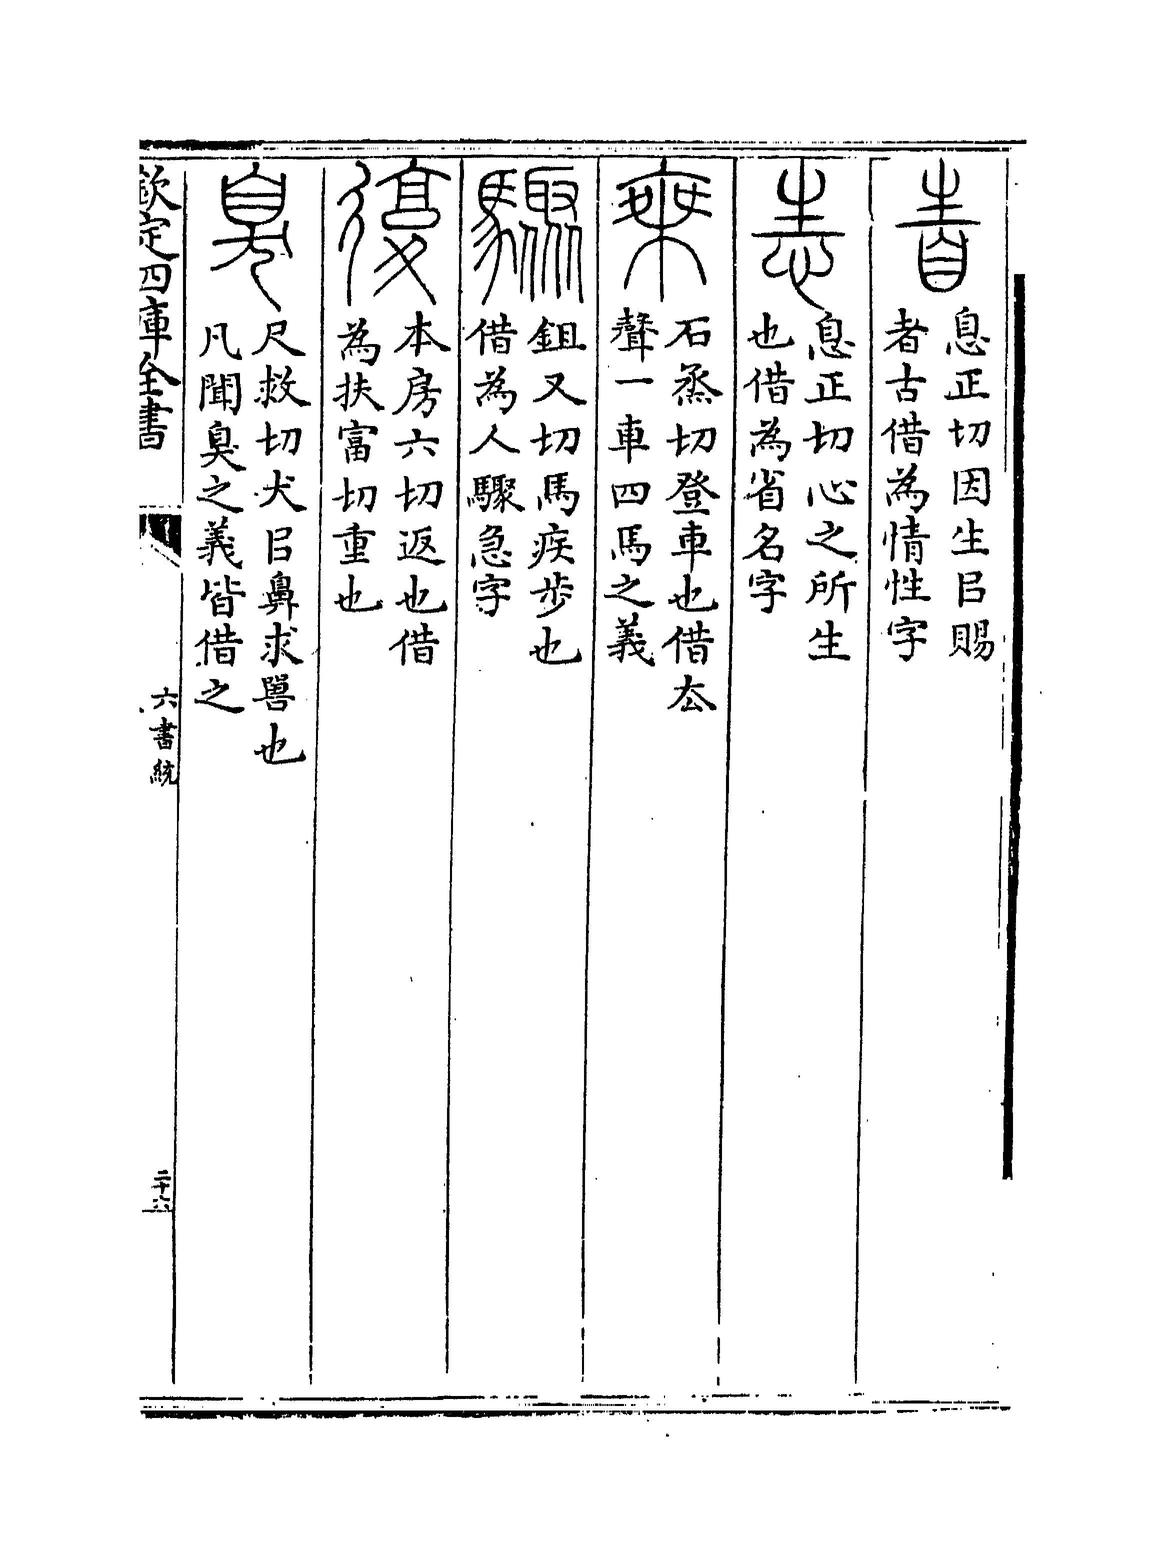 息正切因生㠯賜
者古借為情性字
息正切心之所生
也借為省名字
椉
石烝切登車也借厺
聲一車四馬之義
驟
鉏又切馬疾步也
借為人驟急字
復
本房六切返也借
為扶富切重也
臭
尺救切犬㠯鼻求嘼也
凡聞臭之義皆借之
欽定四庫全書
六書統
二十六